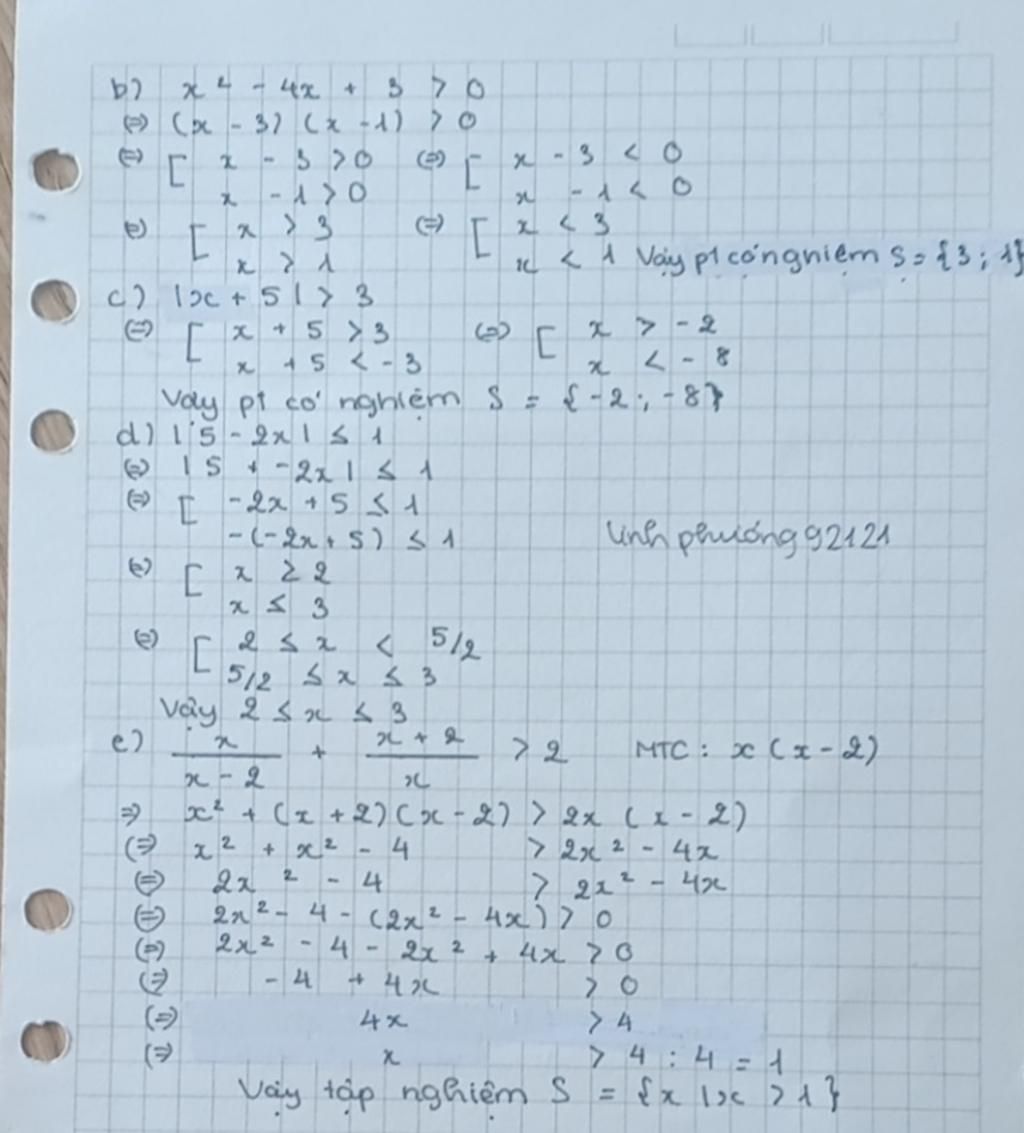 b) x² - 4x + 3 > 0
(=) (x - 3) (x - 1) > 0
(=) [ x - 3 > 0 (=) [ x - 3 < 0
x - 1 > 0 x - 1 < 0
(=) [ x > 3 (=) [ x < 3
x > 1 x < 1 Vậy pt có nghiệm S = {3 ; 1}
c) |x + 5| > 3
(=) [ x + 5 > 3 (=) [ x > -2
x + 5 < -3 x < -8
Vậy pt có nghiệm S = {-2 ; -8}
d) |5 - 2x| ≤ 1
(=) |5 + -2x| ≤ 1
(=) [ -2x + 5 ≤ 1
-(-2x + 5) ≤ 1
linhphuong92121
(=) [ x ≥ 2
x ≤ 3
(=) [ 2 ≤ x < 5/2
5/2 ≤ x ≤ 3
Vậy 2 ≤ x ≤ 3
e) x/(x - 2) + (x + 2)/x > 2 MTC : x (x - 2)
=> x² + (x + 2) (x - 2) > 2x (x - 2)
(=) x² + x² - 4 > 2x² - 4x
(=) 2x² - 4 > 2x² - 4x
(=) 2x² - 4 - (2x² - 4x) > 0
(=) 2x² - 4 - 2x² + 4x > 0
(=) - 4 + 4x > 0
(=) 4x > 4
(=) x > 4 : 4 = 1
Vậy tập nghiệm S = {x | x > 1}